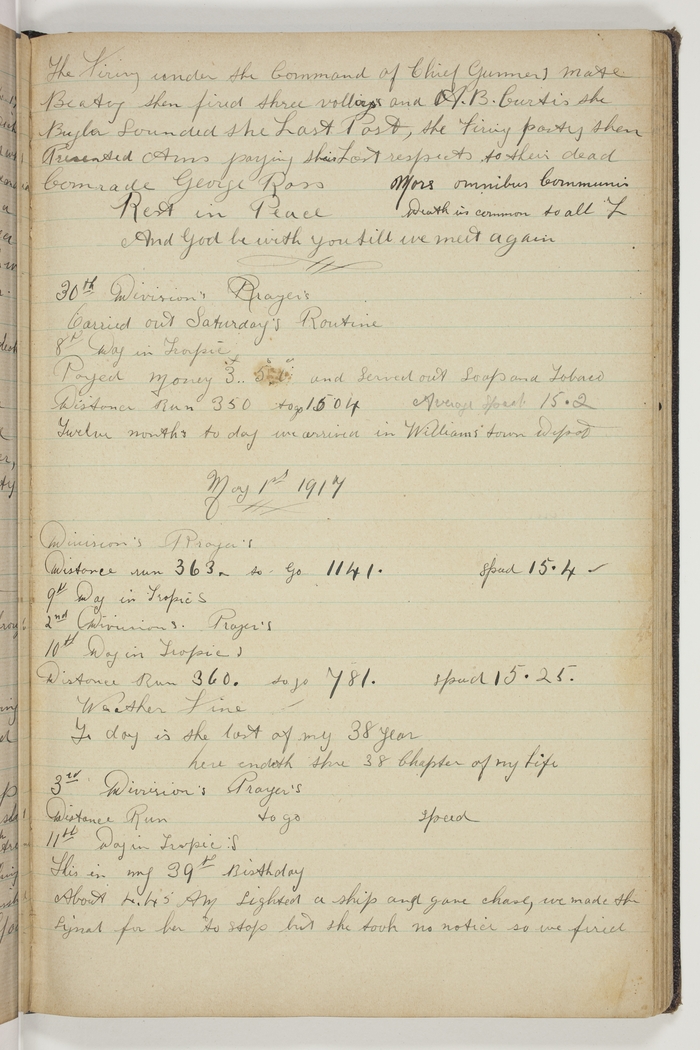 The Firing under the Command of Chief Gunner's mate
Beatty then fired three volleys and A.B. Curtis the
Bugler Sounded the Last Post, the Firing party then
Presented Arms paying their Last respects to their dead
Comrade George Ross Mors omnibus Communis
Rest in Peace Death is common to all
And God be with you till we meet again
30th Division's Prayer's
Carried out Saturday's Routine
8th Day in Tropic's
Payed Money 3.. and Served out Soap and Tobaco
Distance Run 350 to go 1504 Average Speed 15.2
Twelve months to day we arrived in Williams'town Depot
May 1st 1917
Division's Prayer's
Distance run 363. to Go 1141. Speed 15.4
9th Day in Tropics
2nd Division's. Prayer's
10th Day in Tropic s
Distance Run 360. to go 781. speed 15.25.
Weather Fine
To day is the last of my 38 year
here endeth the 38 Chapter of my Life
3rd Division's Prayer's
Distance Run to go speed
11th Day in Tropic's
This in my 39th Birthday
About 4.45 AM Sighted a ship and gave chase, we made the
Signal for her to stop but she took no notice so we fired